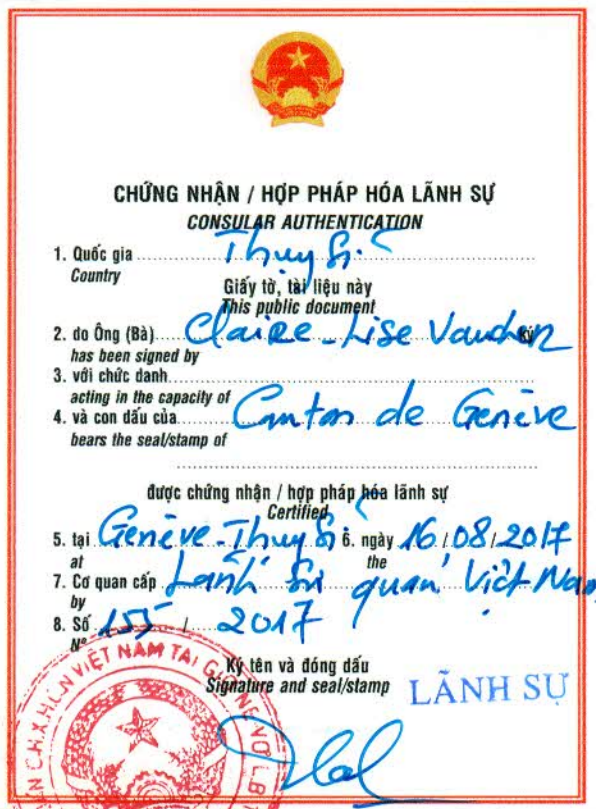 CHỨNG NHẬN / HỢP PHÁP HÓA LÃNH SỰ
CONSULAR AUTHENTICATION
1. Quốc gia Thụy Sĩ
Country
Giấy tờ, tài liệu này
This public document
2. do Ông (Bà) Claire-Lise Vaucher ký
has been signed by
3. với chức danh
acting in the capacity of
4. và con dấu của Canton de Genève
bears the seal/stamp of
được chứng nhận / hợp pháp hóa lãnh sự
Certified
5. tại Genève-Thụy Sĩ 6. ngày 16/08/2017
at the
7. Cơ quan cấp Lãnh sự quán Việt Nam
by
8. Số 155 / 2017
N°
Ký tên và đóng dấu
Signature and seal/stamp
LÃNH SỰ
C.H.X.H.C.N VIỆT NAM TẠI